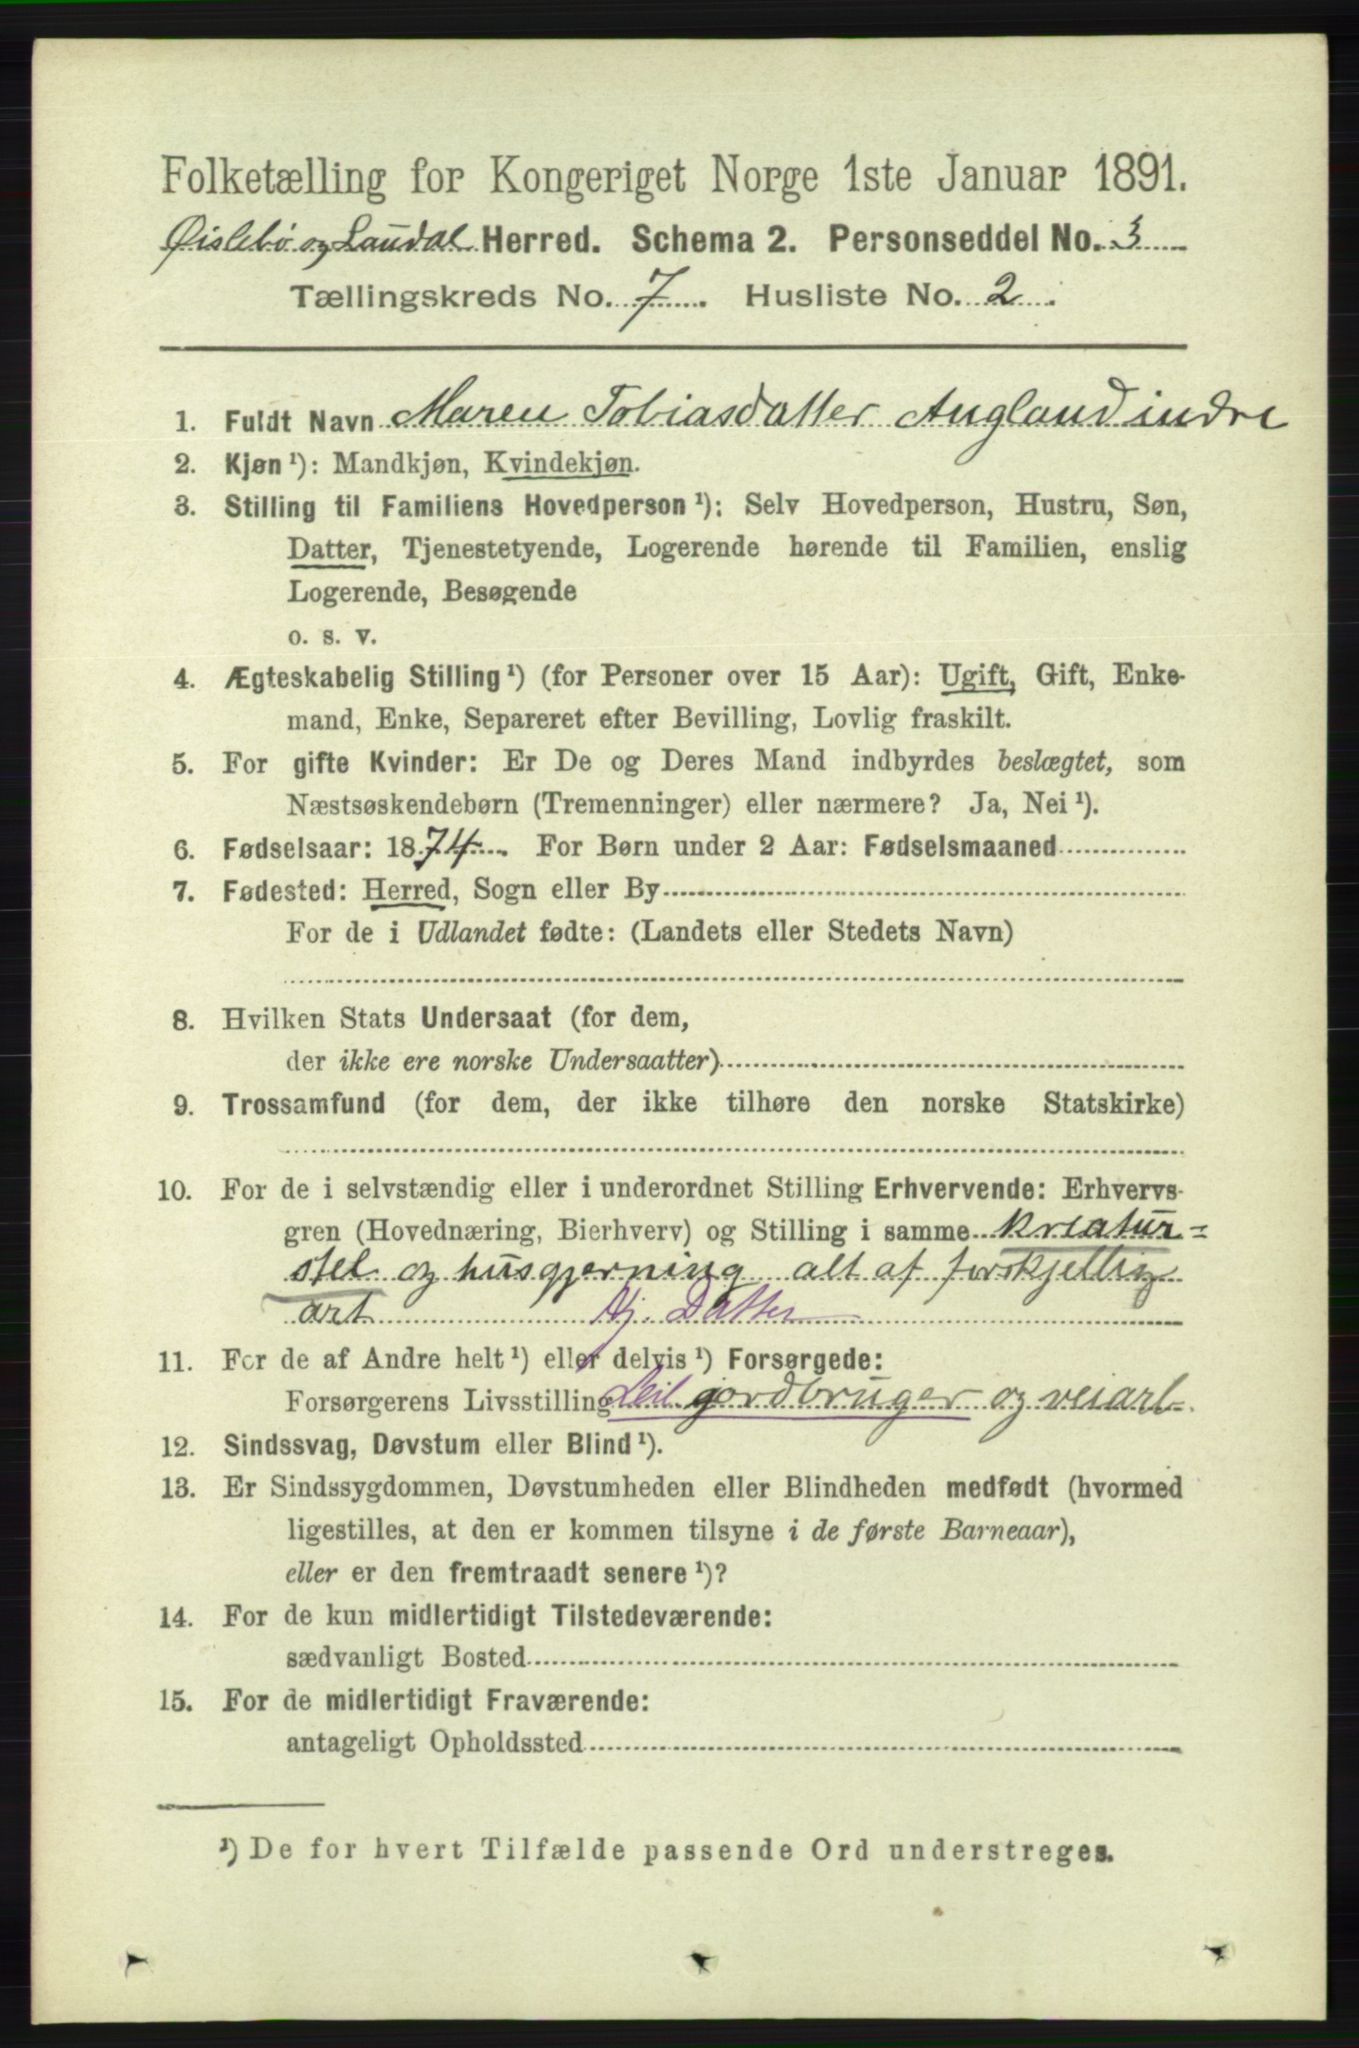 Folketælling for Kongeriget Norge 1ste Januar 1891.
Øislebø og Laudal Herred. Schema 2. Personseddel No. 3
Tællingskreds No. 7. Husliste No. 2.
1. Fuldt Navn Maren Tobiasdatter Augland indre
2. Kjøn ¹): Mandkjøn, Kvindekjøn.
3. Stilling til Familiens Hovedperson ¹): Selv Hovedperson, Hustru, Søn,
Datter, Tjenestetyende, Logerende hørende til Familien, enslig
Logerende, Besøgende
o. s. v.
4. Ægteskabelig Stilling ¹) (for Personer over 15 Aar): Ugift, Gift, Enke-
mand, Enke, Separeret efter Bevilling, Lovlig fraskilt.
5. For gifte Kvinder: Er De og Deres Mand indbyrdes beslægtet, som
Næstsøskendebørn (Tremenninger) eller nærmere? Ja, Nei ¹).
6. Fødselsaar: 1874. For Børn under 2 Aar: Fødselsmaaned
7. Fødested: Herred, Sogn eller By
For de i Udlandet fødte: (Landets eller Stedets Navn)
8. Hvilken Stats Undersaat (for dem,
der ikke ere norske Undersaatter)
9. Trossamfund (for dem, der ikke tilhøre den norske Statskirke)
10. For de i selvstændig eller i underordnet Stilling Erhvervende: Erhvervs-
gren (Hovednæring, Bierhverv) og Stilling i samme kreatur=
stel og husgjerning alt af forskjellig
art Hj. Datter
11. For de af Andre helt ¹) eller delvis ¹) Forsørgede:
Forsørgerens Livsstilling Leil. gordbruger og veiarb.
12. Sindssvag, Døvstum eller Blind ¹).
13. Er Sindssygdommen, Døvstumheden eller Blindheden medfødt (hvormed
ligestilles, at den er kommen tilsyne i de første Barneaar),
eller er den fremtraadt senere ¹)?
14. For de kun midlertidigt Tilstedeværende:
sædvanligt Bosted
15. For de midlertidigt Fraværende:
antageligt Opholdssted
¹) De for hvert Tilfælde passende Ord understreges.